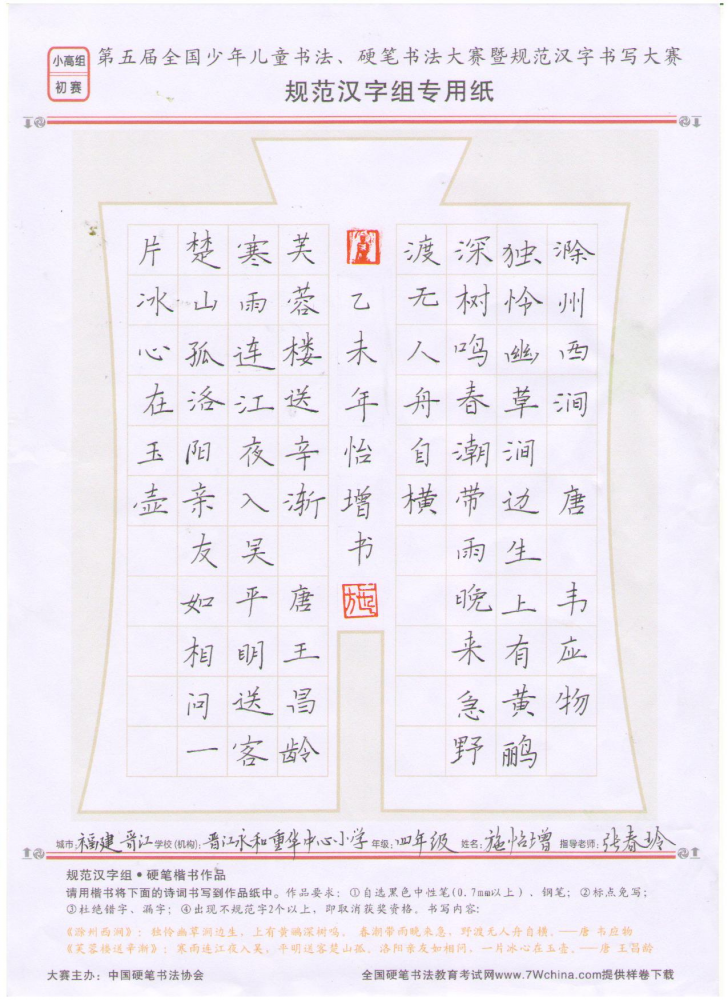 小高组
初赛
第五届全国少年儿童书法、硬笔书法大赛暨规范汉字书写大赛
规范汉字组专用纸
滁州西涧 唐 韦应物
独怜幽草涧边生上有黄鹂
深树鸣春潮带雨晚来急野
渡无人舟自横
乙未年怡增书
芙蓉楼送辛渐 唐王昌龄
寒雨连江夜入吴平明送客
楚山孤洛阳亲友如相问一
片冰心在玉壶
城市:福建晋江 学校(机构):晋江永和重华中心小学 年级:四年级 姓名:施怡增 指导老师:张春玲
规范汉字组•硬笔楷书作品
请用楷书将下面的诗词书写到作品纸中。作品要求:①自选黑色中性笔(0.7mm以上)、钢笔;②标点免写;
③杜绝错字、漏字;④出现不规范字2个以上,即取消获奖资格。书写内容:
《滁州西涧》:独怜幽草涧边生,上有黄鹂深树鸣。 春潮带雨晚来急,野渡无人舟自横。——唐 韦应物
《芙蓉楼送辛渐》:寒雨连江夜入吴,平明送客楚山孤。洛阳亲友如相问,一片冰心在玉壶。——唐 王昌龄
大赛主办:中国硬笔书法协会
全国硬笔书法教育考试网www.7Wchina.com提供样卷下载